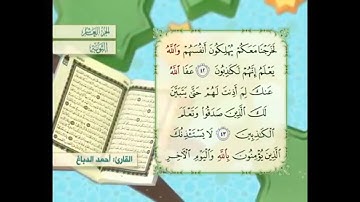 الجزء العاشر
التوبة
لَخَرَجْنَا مَعَكُمْ يُهْلِكُونَ أَنفُسَهُمْ وَاللَّهُ
يَعْلَمُ إِنَّهُمْ لَكَاذِبُونَ ٤٢ عَفَا اللَّهُ
عَنكَ لِمَ أَذِنتَ لَهُمْ حَتَّى يَتَبَيَّنَ
لَكَ الَّذِينَ صَدَقُوا وَتَعْلَمَ
الْكَاذِبِينَ ٤٣ لَا يَسْتَئْذِنُكَ
الَّذِينَ يُؤْمِنُونَ بِاللَّهِ وَالْيَوْمِ الْآخِرِ
القارئ: أحمد الدباغ